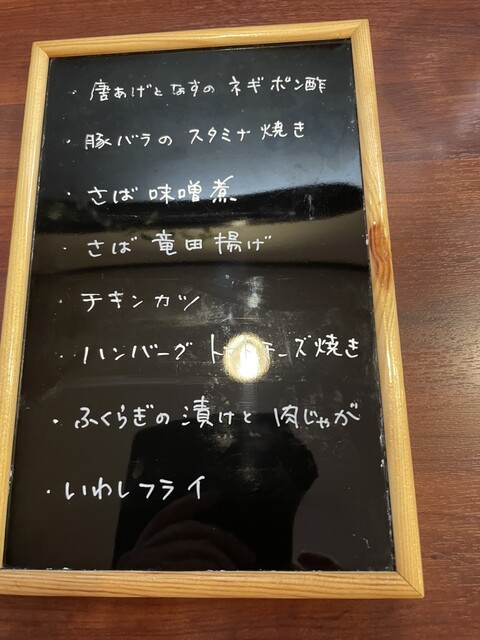 ・唐あげとなすの ネギポン酢
・豚バラの スタミナ焼き
・さば 味噌煮
・さば 竜田揚げ
・チキンカツ
・ハンバーグ チーズ焼き
・ふくらぎの漬けと 肉じゃが
・いわしフライ